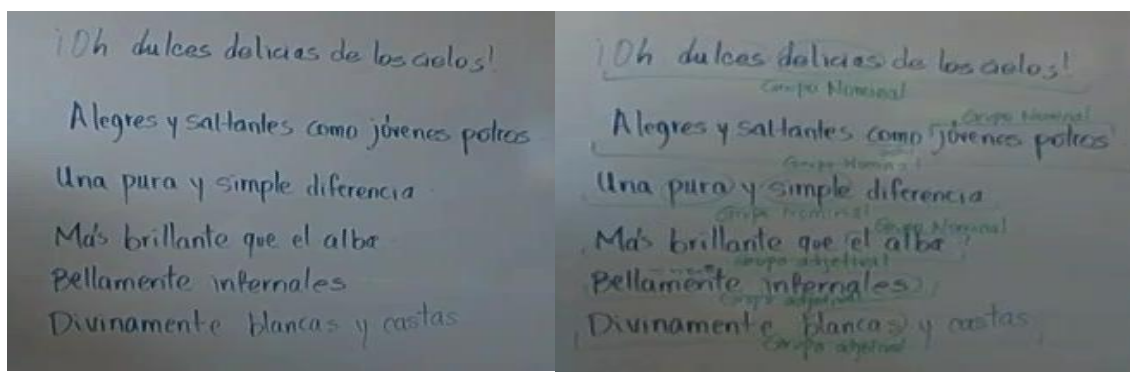 ¡Oh dulces delicias de los cielos!
Alegres y saltantes como jóvenes potros
Una pura y simple diferencia
Más brillante que el alba
Bellamente infernales
Divinamente blancas y castas
¡Oh dulces delicias de los cielos!
Grupo Nominal
Grupo Nominal
Alegres y saltantes como jóvenes potros
Grupo Nominal
Una pura y simple diferencia
Grupo Nominal
Grupo Nominal
Más brillante que el alba
Grupo adjetival
Bellamente infernales
Grupo adjetival
Divinamente blancas y castas
Grupo adjetival